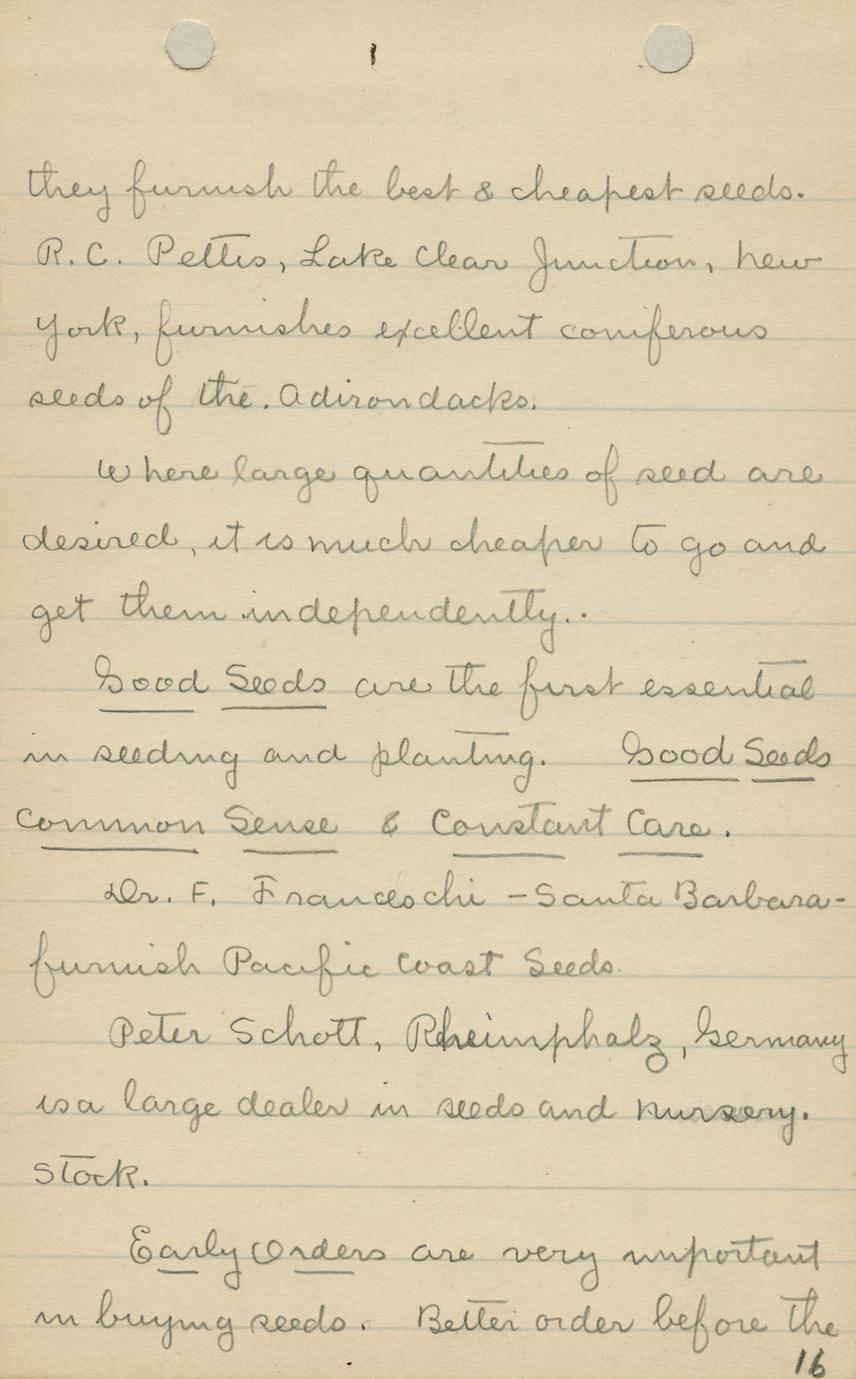 they furnish the best & cheapest seeds.
R. C. Pettis, Lake Clear Junction, New
York, furnishes excellent coniferous
seeds of the. Adirondacks.
Where large quantities of seed are
desired, it is much cheaper to go and
get them independently..
Good Seeds are the first essential
in seeding and planting. Good Seeds
Common Sense & Constant Care.
Dr. F. Franceschi - Santa Barbara -
furnish Pacific Coast Seeds.
Peter Schott, Rheimphalz, Germany
is a large dealer in seeds and nursery.
stock.
Early Orders are very important
in buying seeds. Better order before the
16